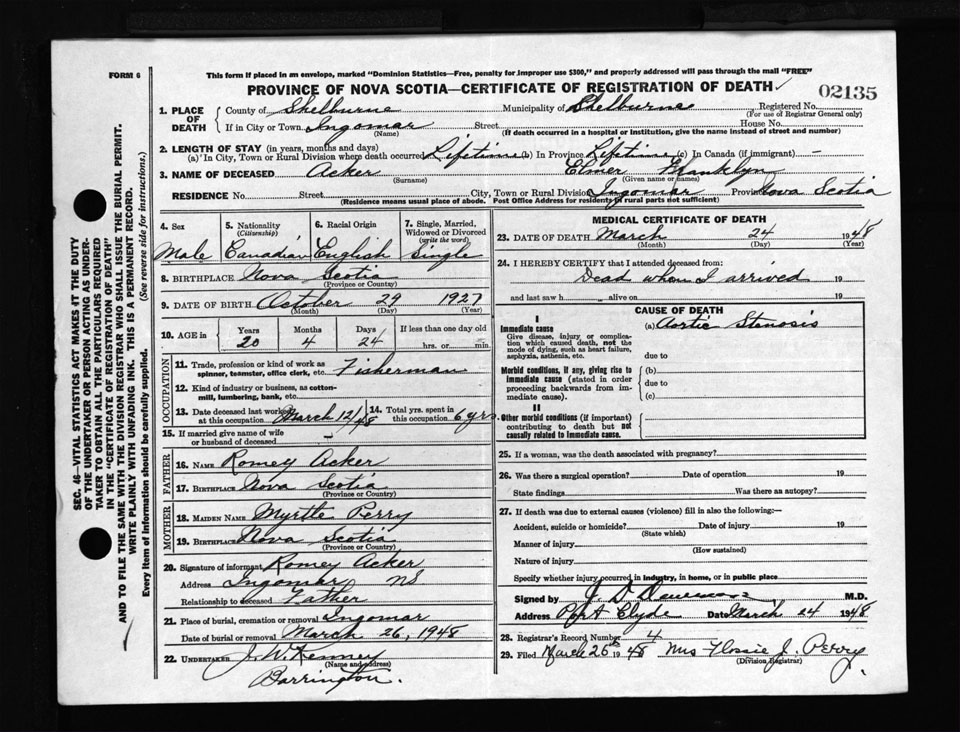 FORM 6
This form if placed in an envelope, marked "Dominion Statistics—Free, penalty for improper use $300," and properly addressed will pass through the mail "FREE"
PROVINCE OF NOVA SCOTIA—CERTIFICATE OF REGISTRATION OF DEATH
02135
1. PLACE OF DEATH County of Shelburne Municipality of Shelburne Registered No.
(For use of Registrar General only)
If in City or Town Ingomar Street House No.
(Name) (If death occurred in a hospital or institution, give the name instead of street and number)
2. LENGTH OF STAY (in years, months and days)
(a) In City, Town or Rural Division where death occurred Lifetime (b) In Province Lifetime (c) In Canada (if immigrant) —
3. NAME OF DECEASED Acker Elmer Franklyn
(Surname) (Given name or names)
RESIDENCE No. Street City, Town or Rural Division Ingomar Province Nova Scotia
(Residence means usual place of abode. Post Office Address for residents in rural parts not sufficient)
4. Sex 5. Nationality (Citizenship) 6. Racial Origin 7. Single, Married, Widowed or Divorced (write the word)
Male Canadian English Single
8. BIRTHPLACE Nova Scotia
(Province or Country)
9. DATE OF BIRTH October 29 1927
(Month) (Day) (Year)
10. AGE in Years Months Days If less than one day old
20 4 24 hrs. or min.
OCCUPATION
11. Trade, profession or kind of work as spinner, teamster, office clerk, etc. Fisherman
12. Kind of industry or business, as cotton-mill, lumbering, bank, etc.
13. Date deceased last worked at this occupation March 12/48 14. Total yrs. spent in this occupation 6 yrs.
15. If married give name of wife or husband of deceased -
FATHER
16. NAME Romey Acker
17. BIRTHPLACE Nova Scotia
(Province or Country)
MOTHER
18. MAIDEN NAME Myrtle Perry
19. BIRTHPLACE Nova Scotia
(Province or Country)
20. Signature of informant Romey Acker
Address Ingomar NS
Relationship to deceased Father
21. Place of burial, cremation or removal Ingomar
Date of burial or removal March 26, 1948
22. UNDERTAKER J. W. Kenney
(Name and address)
Barrington.
MEDICAL CERTIFICATE OF DEATH
23. DATE OF DEATH March 24 1948
(Month) (Day) (Year)
24. I HEREBY CERTIFY that I attended deceased from:
Dead when I arrived 19
and last saw h alive on 19
CAUSE OF DEATH
I
Immediate cause (a) Aortic Stenosis
Give disease, injury or complication which caused death, not the mode of dying, such as heart failure, asphyxia, asthenia, etc.
due to
Morbid conditions, if any, giving rise to immediate cause (stated in order proceeding backwards from immediate cause).
(b)
due to
(c)
II
Other morbid conditions (if important) contributing to death but not causally related to immediate cause.
25. If a woman, was the death associated with pregnancy?
26. Was there a surgical operation? Date of operation 19
State findings Was there an autopsy?
27. If death was due to external causes (violence) fill in also the following:—
Accident, suicide or homicide? Date of injury 19
(State which)
Manner of injury
(How sustained)
Nature of injury
Specify whether injury occurred in industry, in home, or in public place
Signed by M.D.
Address Port Clyde Date March 24 1948
28. Registrar's Record Number 4
29. Filed March 26th 1948 Mrs Flossie J. Perry.
(Division Registrar)
SEC. 46—VITAL STATISTICS ACT MAKES IT THE DUTY
OF THE UNDERTAKER OR PERSON ACTING AS UNDER-
TAKER TO OBTAIN ALL THE PARTICULARS REQUIRED
IN THE "CERTIFICATE OF REGISTRATION OF DEATH"
AND TO FILE THE SAME WITH THE DIVISION REGISTRAR WHO SHALL ISSUE THE BURIAL PERMIT.
WRITE PLAINLY WITH UNFADING INK. THIS IS A PERMANENT RECORD.
Every item of Information should be carefully supplied. (See reverse side for instructions.)